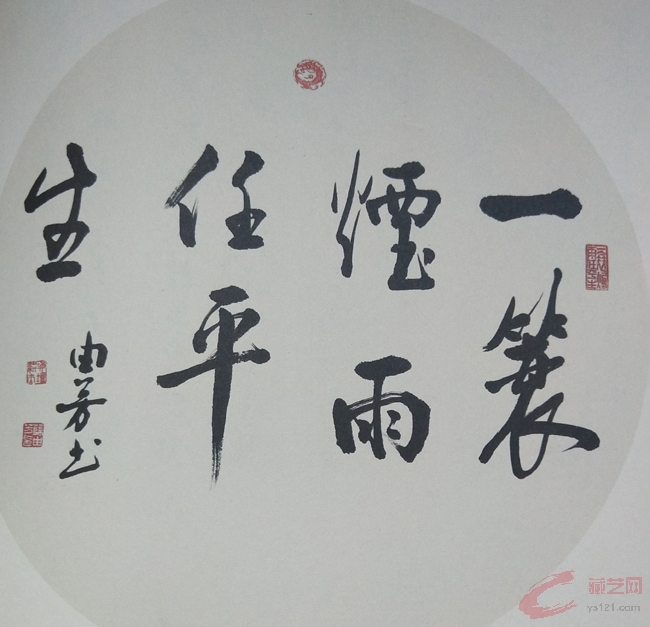 一簑
煙雨
任平
生
由芳书
藏艺网
ys121.com